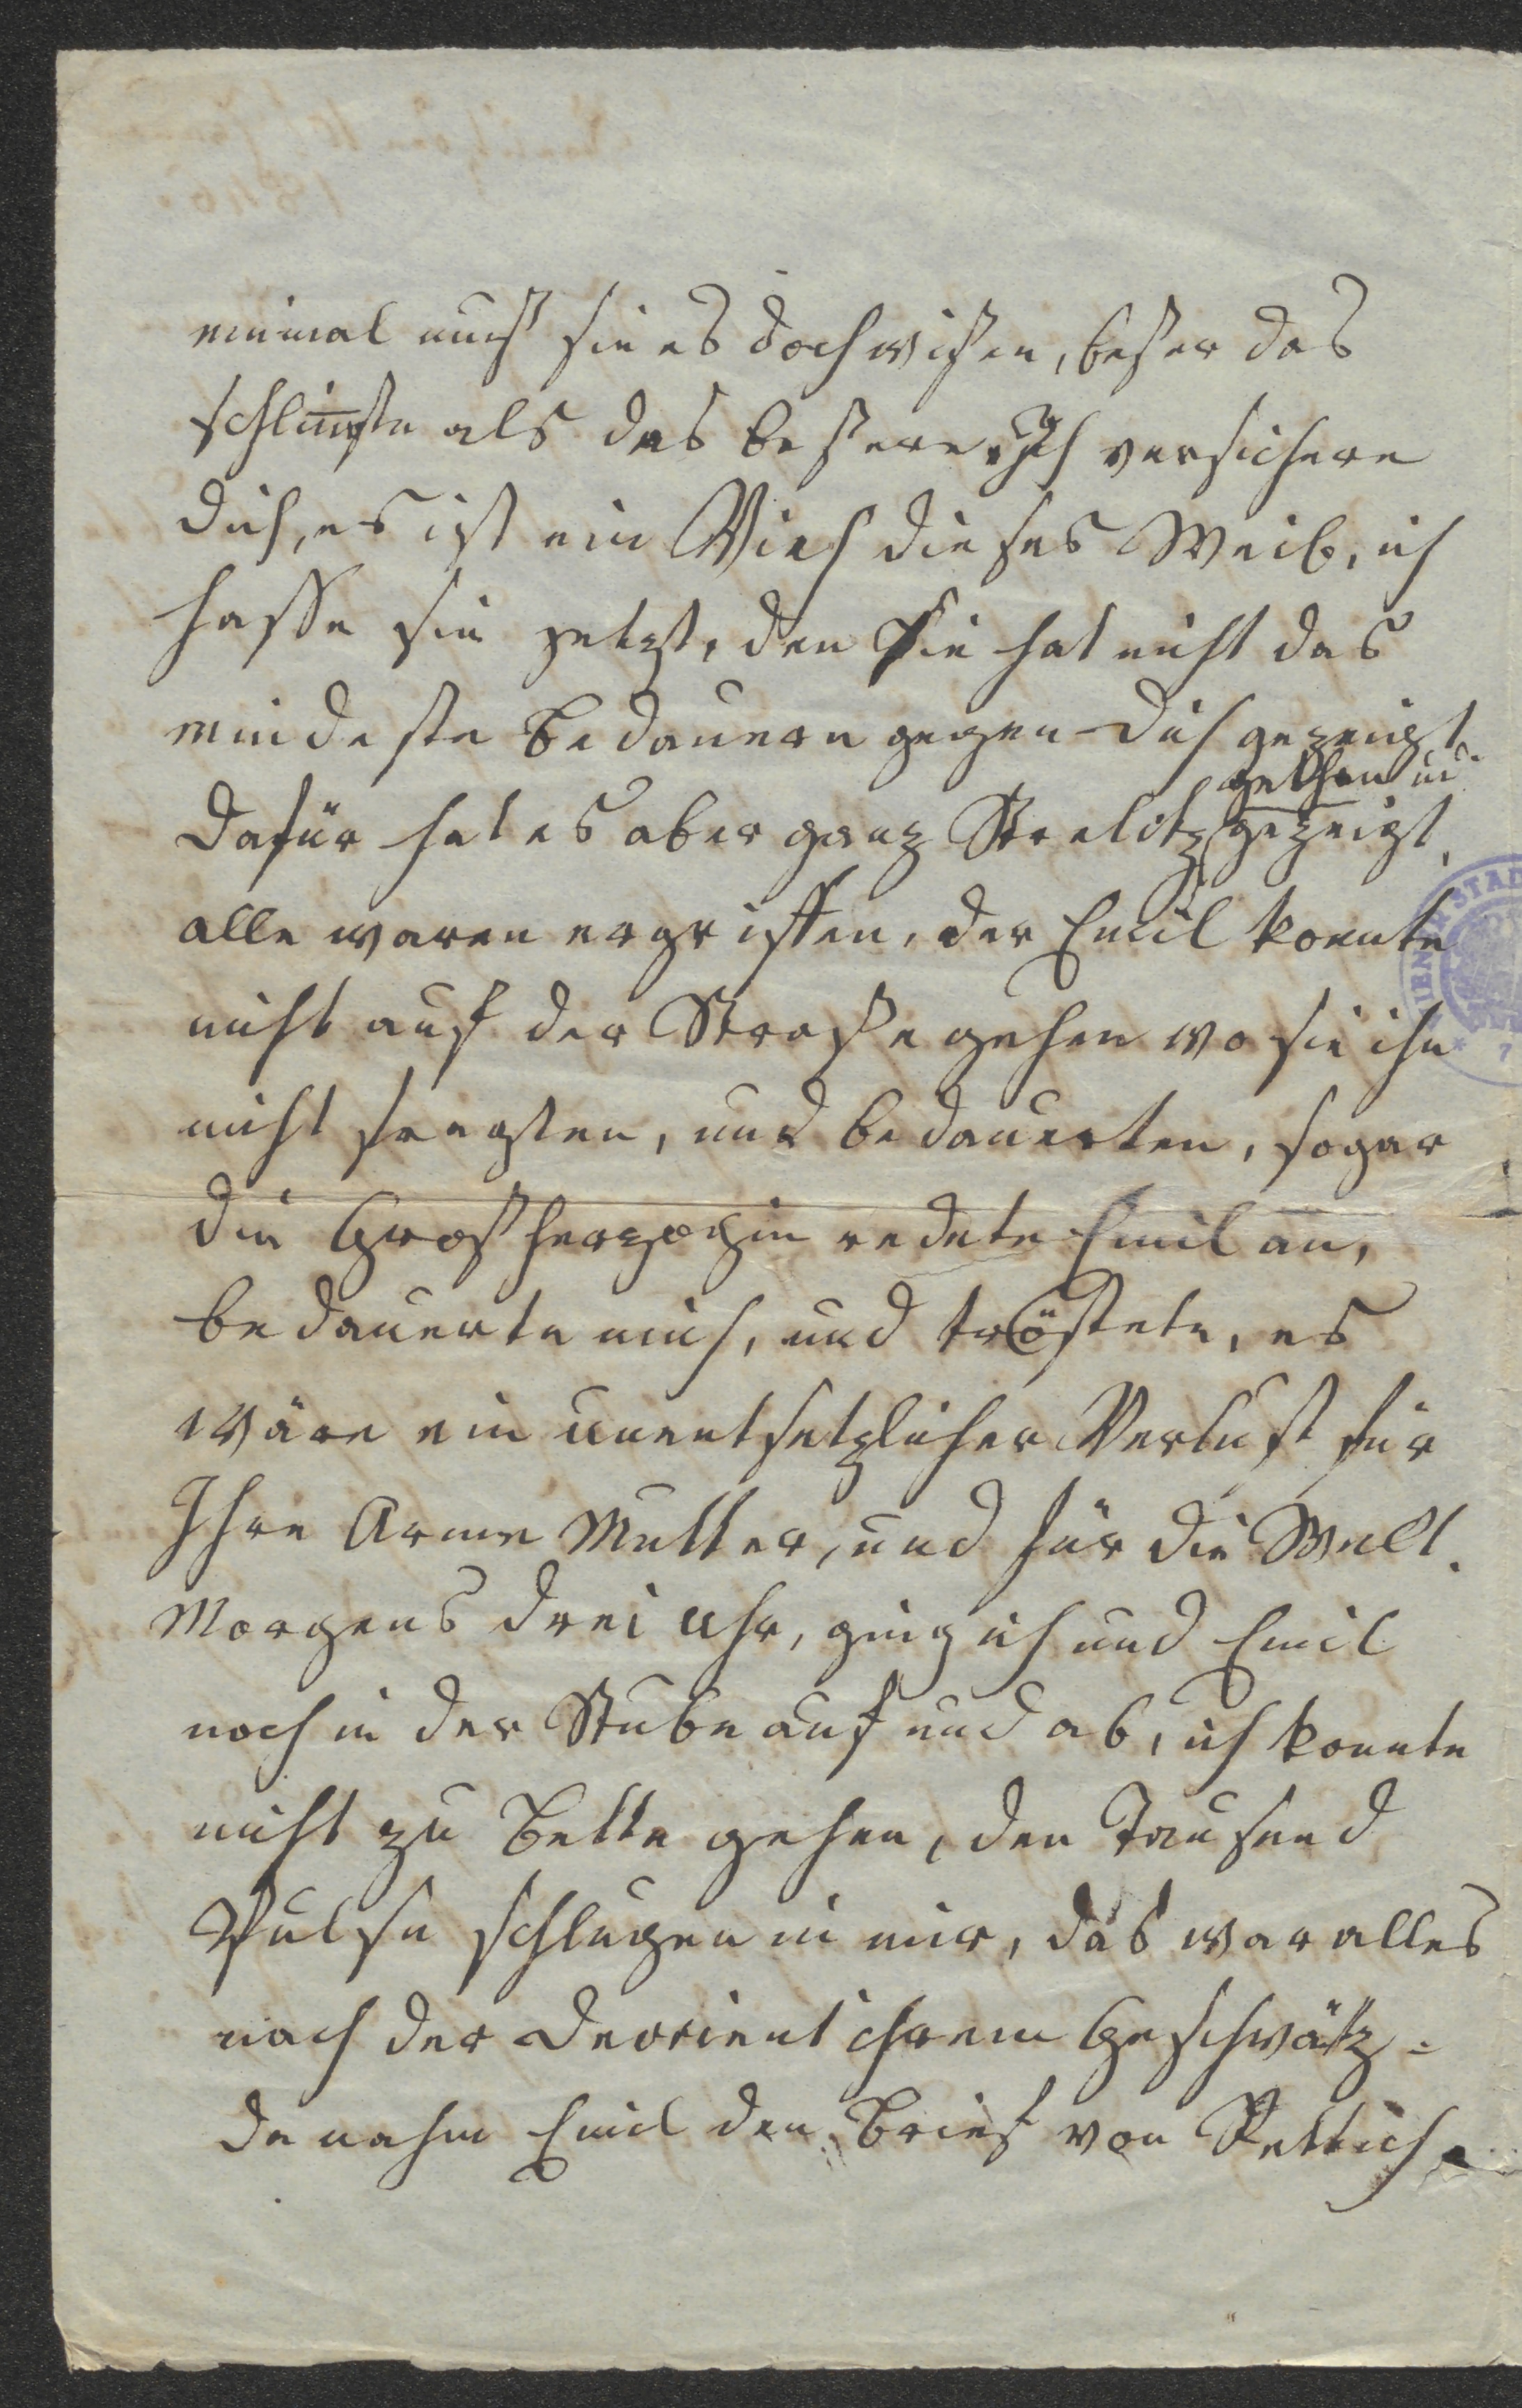 einmal muß sie es doch wißen, beßer das
schlim̅ste als das beßere. Ich versichere
dich, es ist ein Vieh dieses Weib, ich
hasse sie jetzt, den sie hat nicht das
mindeste Bedauern gegen dich gezeigt
gethan u
Dafür hat es aber ganz Strelitz gezeigt,
alle waren ergriffen, der Emil konnte
nicht auf der Straße gehen wo sie ihn
nicht fragten, und bedauerten, sogar
die Großherzogin redete Emil an,
bedauerte mich, und tröstete, es
wäre ein unentsetzlicher Verlust für
Ihre Arme Mutter, und für die Welt.
Morgens drei Uhr, ging ich und Emil
noch in der Stube auf und ab, ich konnte
nicht zu Bette gehen, den Tausend
Pulse schlugen in mir, das war alles
nach der Devrient ihrem Geschwätz =
da nahm Emil den Brief von Rettich.
STAD
7